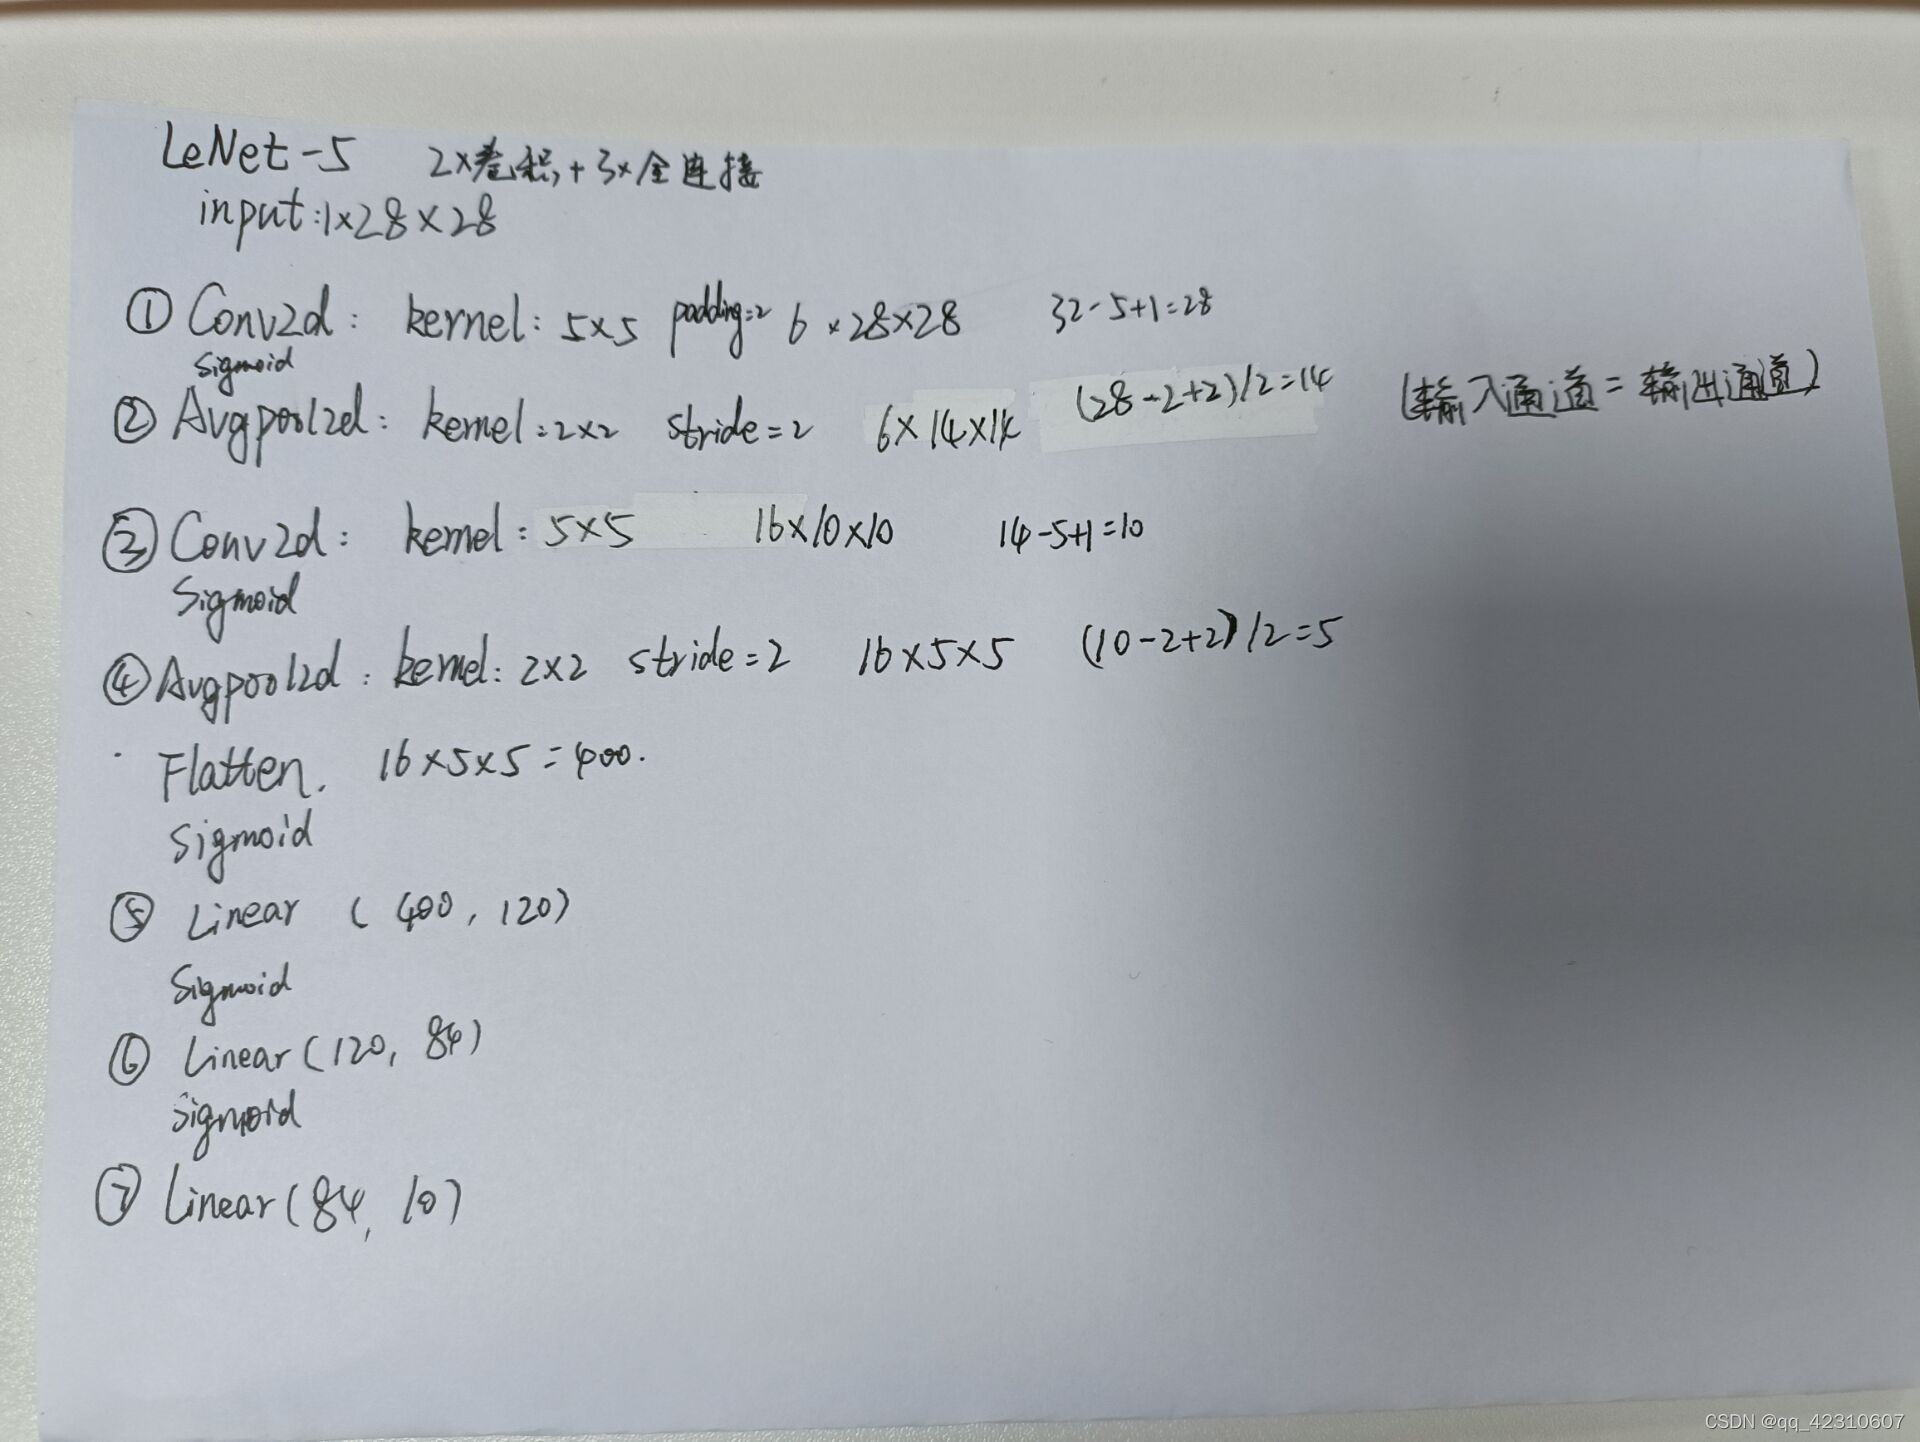 LeNet-5 2×卷积+3×全连接
input:1×28×28
① Conv2d: kernel: 5×5 padding=2 6×28×28 32-5+1=28
Sigmoid
② Avgpool2d: kernel:2×2 stride=2 6×14×14 (28-2+2)/2=14 (输入通道=输出通道)
③ Conv2d: kernel: 5×5 16×10×10 14-5+1=10
Sigmoid
④ Avgpool2d: kernel: 2×2 stride=2 16×5×5 (10-2+2)/2=5
Flatten. 16×5×5=400.
Sigmoid
⑤ Linear (400, 120)
Sigmoid
⑥ Linear(120, 84)
Sigmoid
⑦ Linear(84, 10)
CSDN @qq_42310607